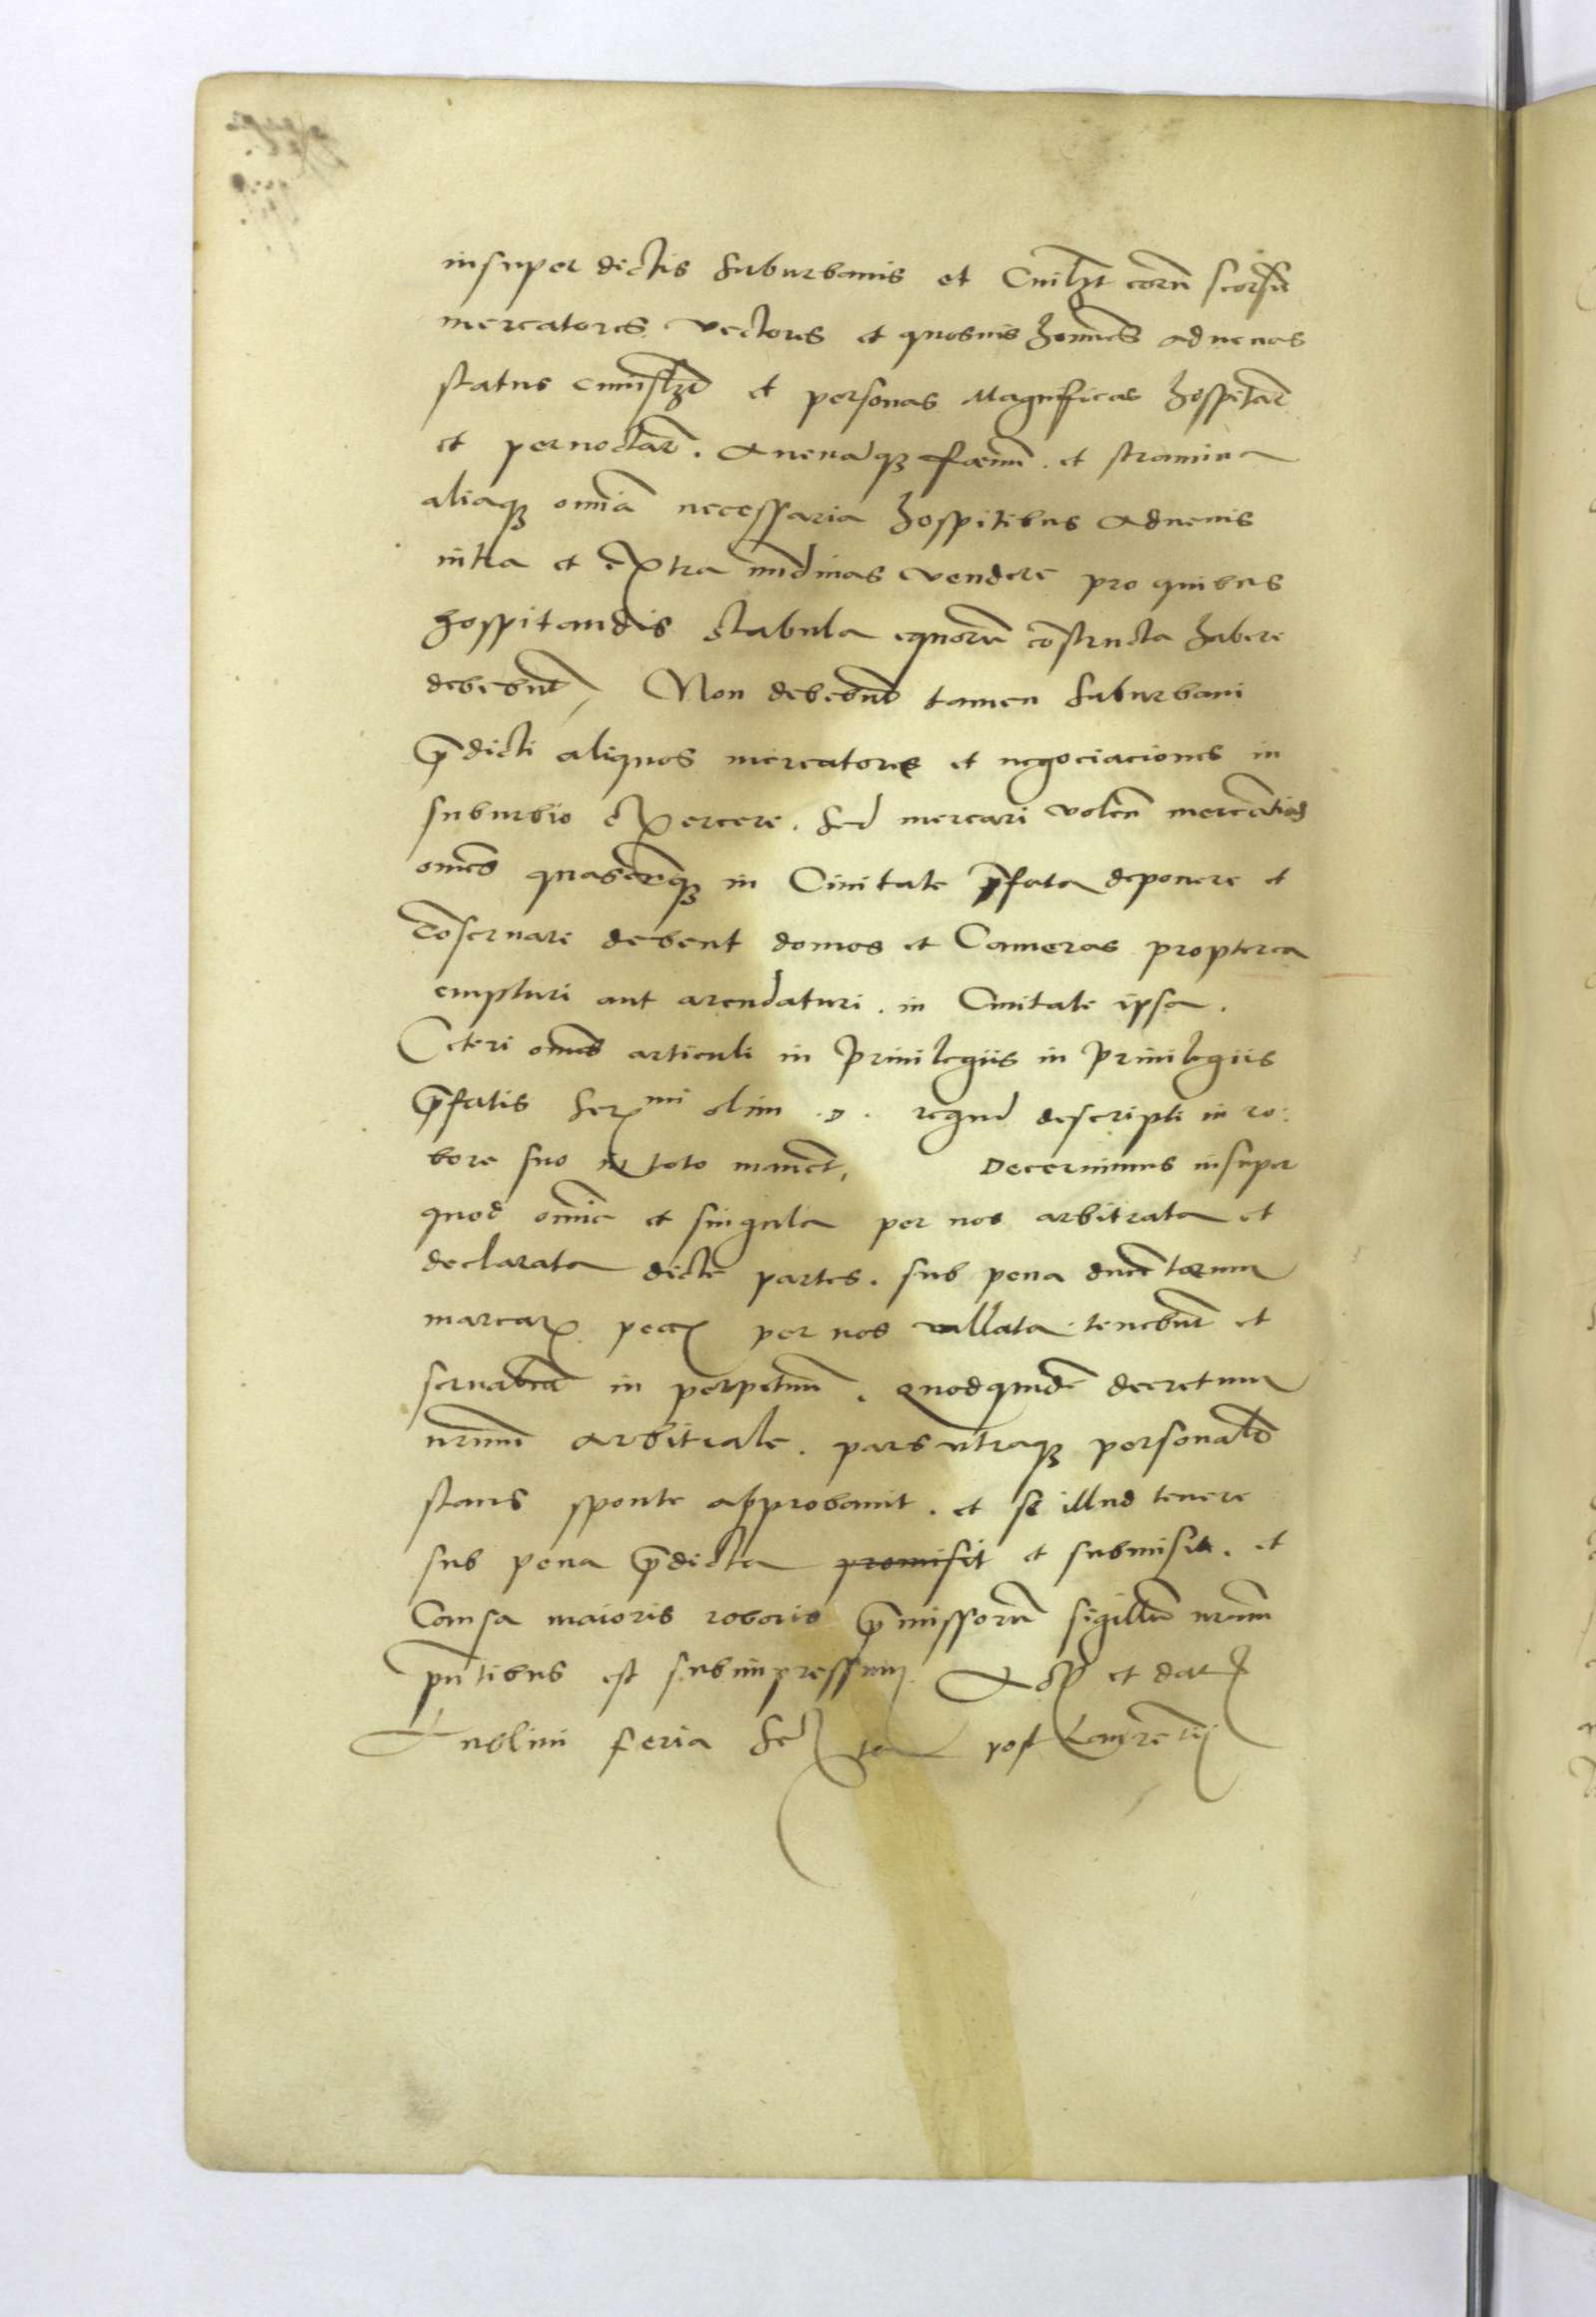 insuper dictis suburbanis et Cuilꝫt eorū seorsū
mercatores vectores et quosuis homīes aduenas
status cuiuslꝫt et personas Magnificas hospitaꝛ̄
et pernoctaꝛ̄ . Auenāqꝫ foenū . et stramina
aliaqꝫ omīa necessaria hospitibus aduenis
intra et extra nūdinas vendere pro quibus
hospitandis stabula equorū cōstructa habere
debebūt / Non debebūt tamen suburbani
p̄dicti aliquos mercatores et negociaciones in
suburbio exercere . Sed mercari volen̄ mercātias
omēs quascūqꝫ in Ciuitate p̄fata deponere et
cōseruare debent domos et Cameras propterea
empturi aut arendaturi . in Ciuitate ipsa .
Ceteri omēs articuli in priuilegiis in priuilegiis
p̄fatis Ser̄mi olim .D. regnd̄ descripti in ro:
bore suo in toto manēt , Decernimus insuper
quod om̄ia et singula per nos arbitrata et
declarata dicte partes . sub pena ducētarum
marcaꝝ pecc̄ per nos vallata tenebūt et
seruabūt in perpetuū . Quodquidē decretum
nrūm arbitrale . pars vtraqꝫ personalꝛ̄
stans sponte approbauit . et se illud tenere
sub pena p̄dicta promisit et submisit . et
Causa maioris roboris p̄missorū sigillū nrūm
pn̄tibus est subimpressum Act̄ et dat̄
Lublini feria Sexta post Laurētij